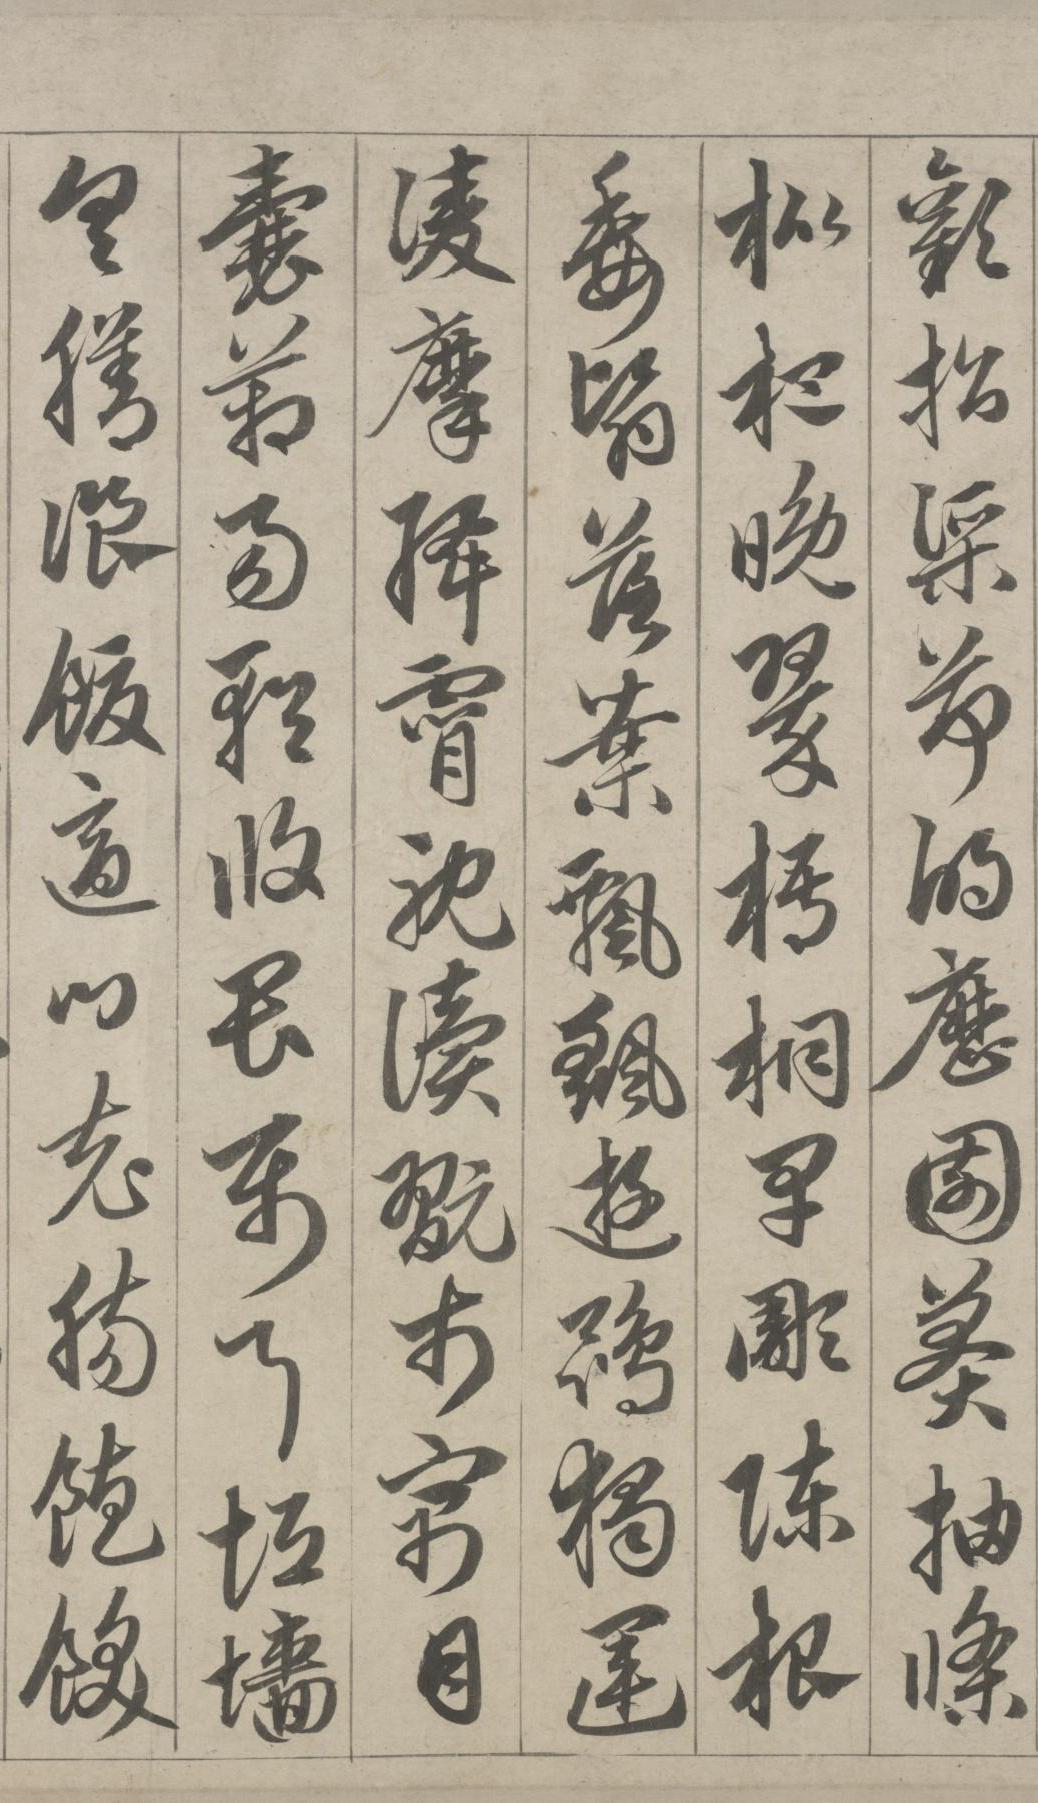 歡招渠荷的歷園莽抽條
枇杷晚翠梧桐早彫陳根
委翳落葉飄颻遊鵾獨運
凌摩絳霄耽讀翫市寓目
囊箱易輶攸畏屬耳垣墻
具膳飡飯適口充腸飽飫